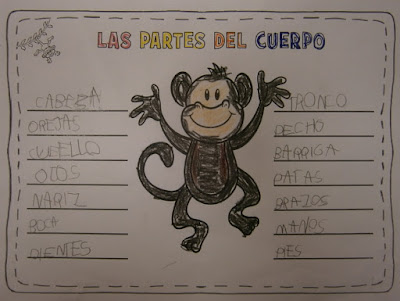 LAS PARTES DEL CUERPO
CABEZA
OREJAS
CUELLO
OJOS
NARIZ
BOCA
DIENTES
TRONCO
PECHO
BARRIGA
PATAS
BRAZOS
MANOS
PIES